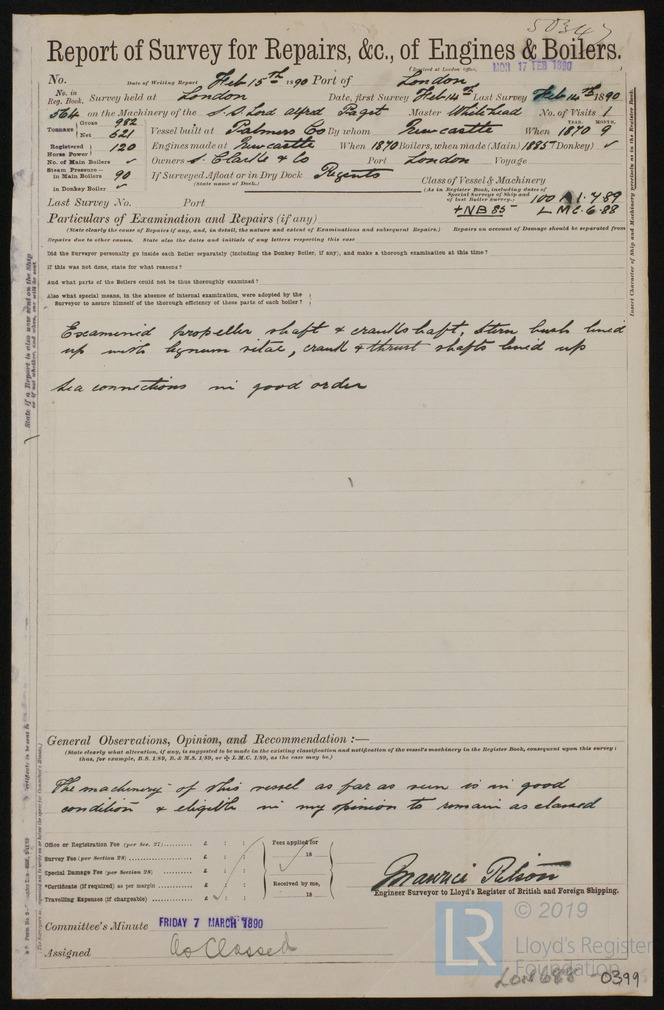 50347
Report of Survey for Repairs, &c., of Engines & Boilers.
(Received at London Office, MON 17 FEB 1890
No. Date of Writing Report Feb 15th 1890 Port of London
No. in Reg. Book. Survey held at London Date, first Survey Feb 14th Last Survey Feb 14th 1890
564 on the Machinery of the S.S. Lord Alfred Paget Master Whitehead No. of Visits 1
Tonnage Gross 982 Net 621 Vessel built at Palmers Co By whom Newcastle When 1870 9 YEAR. MONTH.
Registered Horse Power 120 Engines made at Newcastle When 1870 Boilers, when made (Main) 1885 (Donkey) ✓
No. of Main Boilers ✓ Owners S. Clarke & Co Port London Voyage
Steam Pressure— in Main Boilers 90 If Surveyed Afloat or in Dry Dock Regents
(State name of Dock.)
in Donkey Boiler ✓
Class of Vessel & Machinery
(As in Register Book, including dates of Special Surveys of Ship and of last Boiler Survey.) 100 A1. 4 89
Last Survey No. Port + NB 85 LMC. 6. 88
Particulars of Examination and Repairs (if any)
(State clearly the cause of Repairs if any, and, in detail, the nature and extent of Examinations and subsequent Repairs.) Repairs on account of Damage should be separated from
Repairs due to other causes. State also the dates and initials of any letters respecting this case
Did the Surveyor personally go inside each Boiler separately (including the Donkey Boiler, if any), and make a thorough examination at this time?
If this was not done, state for what reasons?
And what parts of the Boilers could not be thus thoroughly examined?
Also what special means, in the absence of internal examination, were adopted by the
Surveyor to assure himself of the thorough efficiency of those parts of each boiler?
Examined propeller shaft & crankshaft, stern bush lined
up with lignum vitae, crank & thrust shafts lined up
Sea connections in good order
General Observations, Opinion, and Recommendation :—
(State clearly what alteration, if any, is suggested to be made in the existing classification and notification of the vessel's machinery in the Register Book, consequent upon this survey;
thus, for example, B.S. 1/89, B. & M.S. 1/89, or L.M.C. 1/89, as the case may be.)
The machinery of this vessel as far as seen is in good
condition & eligible in my opinion to remain as classed
Office or Registration Fee (per Sec. 27) £ : :
Survey Fee (per Section 28) £ : :
Special Damage Fee (per Section 28) £ : :
*Certificate (if required) as per margin £ : :
Travelling Expenses (if chargeable) £ : :
Fees applied for
18
Received by me,
18
Engineer Surveyor to Lloyd's Register of British and Foreign Shipping.
Committee's Minute FRIDAY 7 MARCH 1890
Assigned As Classed
LR © 2019
Lloyd's Register
Foundation
LON 688-0399
Insert Character of Ship and Machinery precisely as in the Register Book.